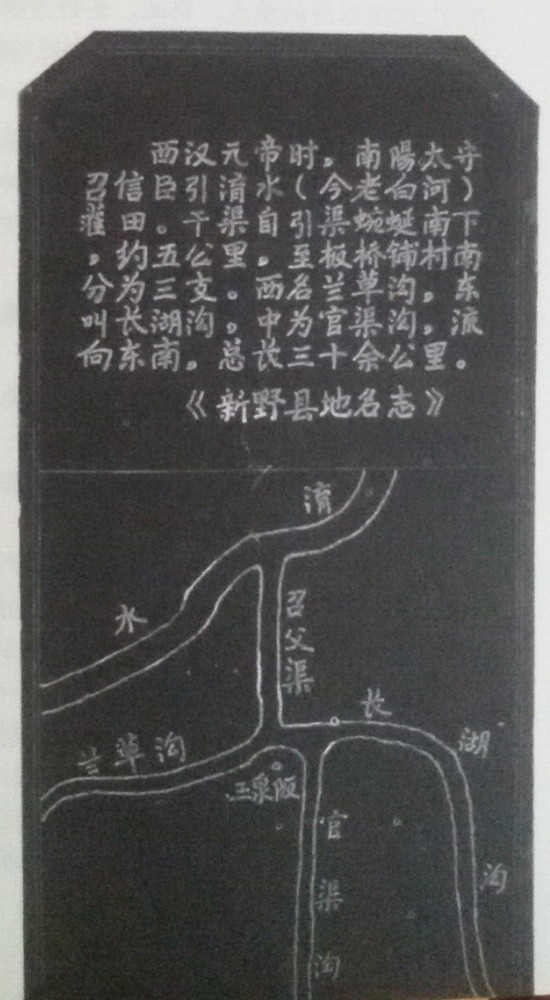 西汉元帝时。南陽太守
召信臣引淯水（今老白河）
灌田。干渠自引渠蜿蜒南下
，约五公里。至板桥铺村南
分为三支。西名兰草沟。东
叫长湖沟。中为官渠沟。流
向东南。总长三十余公里。
《新野县地名志》
淯水
召父渠
长湖沟
兰草沟
三泉阪
官渠沟